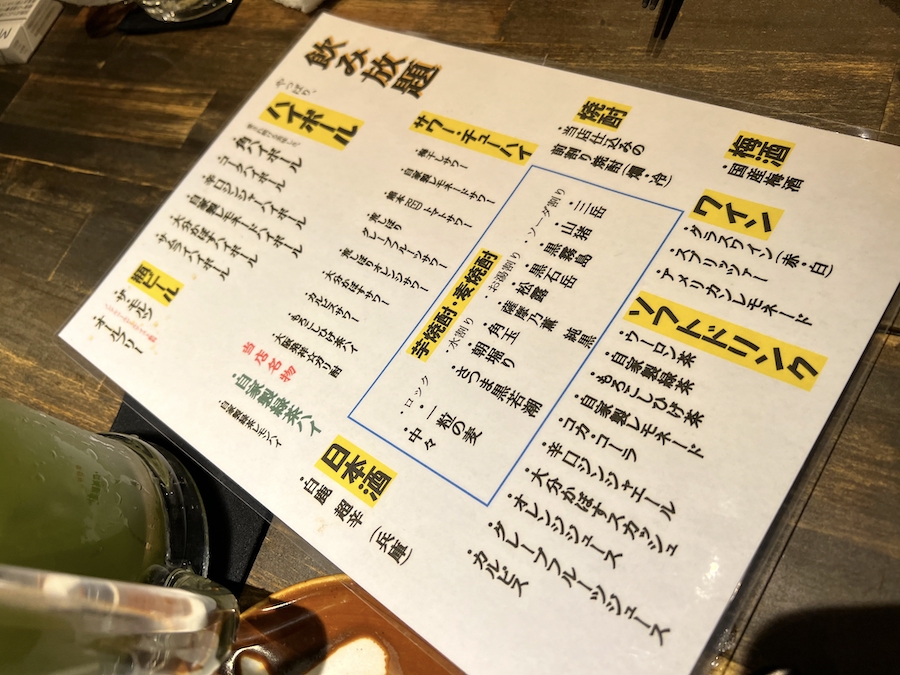 飲み放題
やっぱり、
ハイボール
角ハイボール
コークハイボール
辛口ジンジャーハイボール
自家製レモネードハイボール
大分かぼすハイボール
サムライハイボール
サワー・チューハイ
梅干しサワー
自家製レモネードサワー
トマトサワー
夜しぼり
グレープフルーツサワー
夜しぼりオレンジサワー
大分かぼすサワー
カルピスサワー
もろこしひげ茶ハイ
当店名物
自家製緑茶ハイ
自家製緑茶レモンハイ
サーモルツ
オールフリー
焼酎
・当店仕込みの
前割り焼酎(燗・冷)
梅酒
・国産梅酒
ワイン
・グラスワイン(赤・白)
・スプリッツァー
・アメリカンレモネード
芋焼酎・麦焼酎
・ロック ・水割り ・お湯割り ・ソーダ割り
・三岳
・山猪
・黒霧島
・黒石岳
・松露
・薩摩乃薫 純黒
・角玉
・朝堀り
・さつま黒若潮
・一粒の麦
・中々
ソフトドリンク
・ウーロン茶
・自家製緑茶
・もろこしひげ茶
・自家製レモネード
・コカ・コーラ
・辛口ジンジャエール
・大分かぼすスカッシュ
・オレンジジュース
・グレープフルーツジュース
・カルピス
日本酒
・白鹿 超辛 (兵庫)